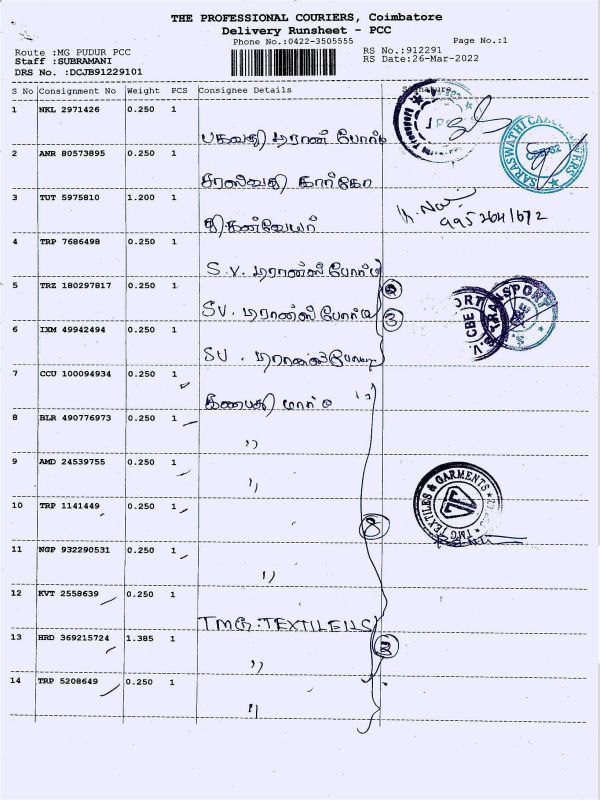 THE PROFESSIONAL COURIERS, Coimbatore
Delivery Runsheet - PCC
Phone No.:0422-3505555 Page No.:1
Route :MG PUDUR PCC RS No.:912291
Staff :SUBRAMANI RS Date:26-Mar-2022
DRS No. :DCJB91229101
S No Consignment No Weight PCS Consignee Details Signature
1 NKL 2971426 0.250 1
பகவதி டிரான் போர்ட்
2 ANR 80573895 0.250 1
சரஸ்வதி கார்கோ
SARASWATHI CARGO
3 TUT 5975810 1.200 1
4 TRP 7686498 0.250 1
S.V. டிரான்ஸ் போர்ட்
5 TRZ 180297817 0.250 1
SV. டிரான்ஸ் போர்ட்
3
6 IXM 49942494 0.250 1
SV. டிரான்ஸ் போர்ட்
S.V. TRANSPORT
CBE
7 CCU 100094934 0.250 1
கணபதி மார்ட்
8 BLR 490776973 0.250 1
"
9 AMD 24539755 0.250 1
"
TMG TEXTILES & GARMENTS
10 TRP 1141449 0.250 1
"
8
11 NGP 932290531 0.250 1
"
12 KVT 2558639 0.250 1
TMG:TEXTILEILS
13 HRD 369215724 1.385 1
"
2
14 TRP 5208649 0.250 1
"